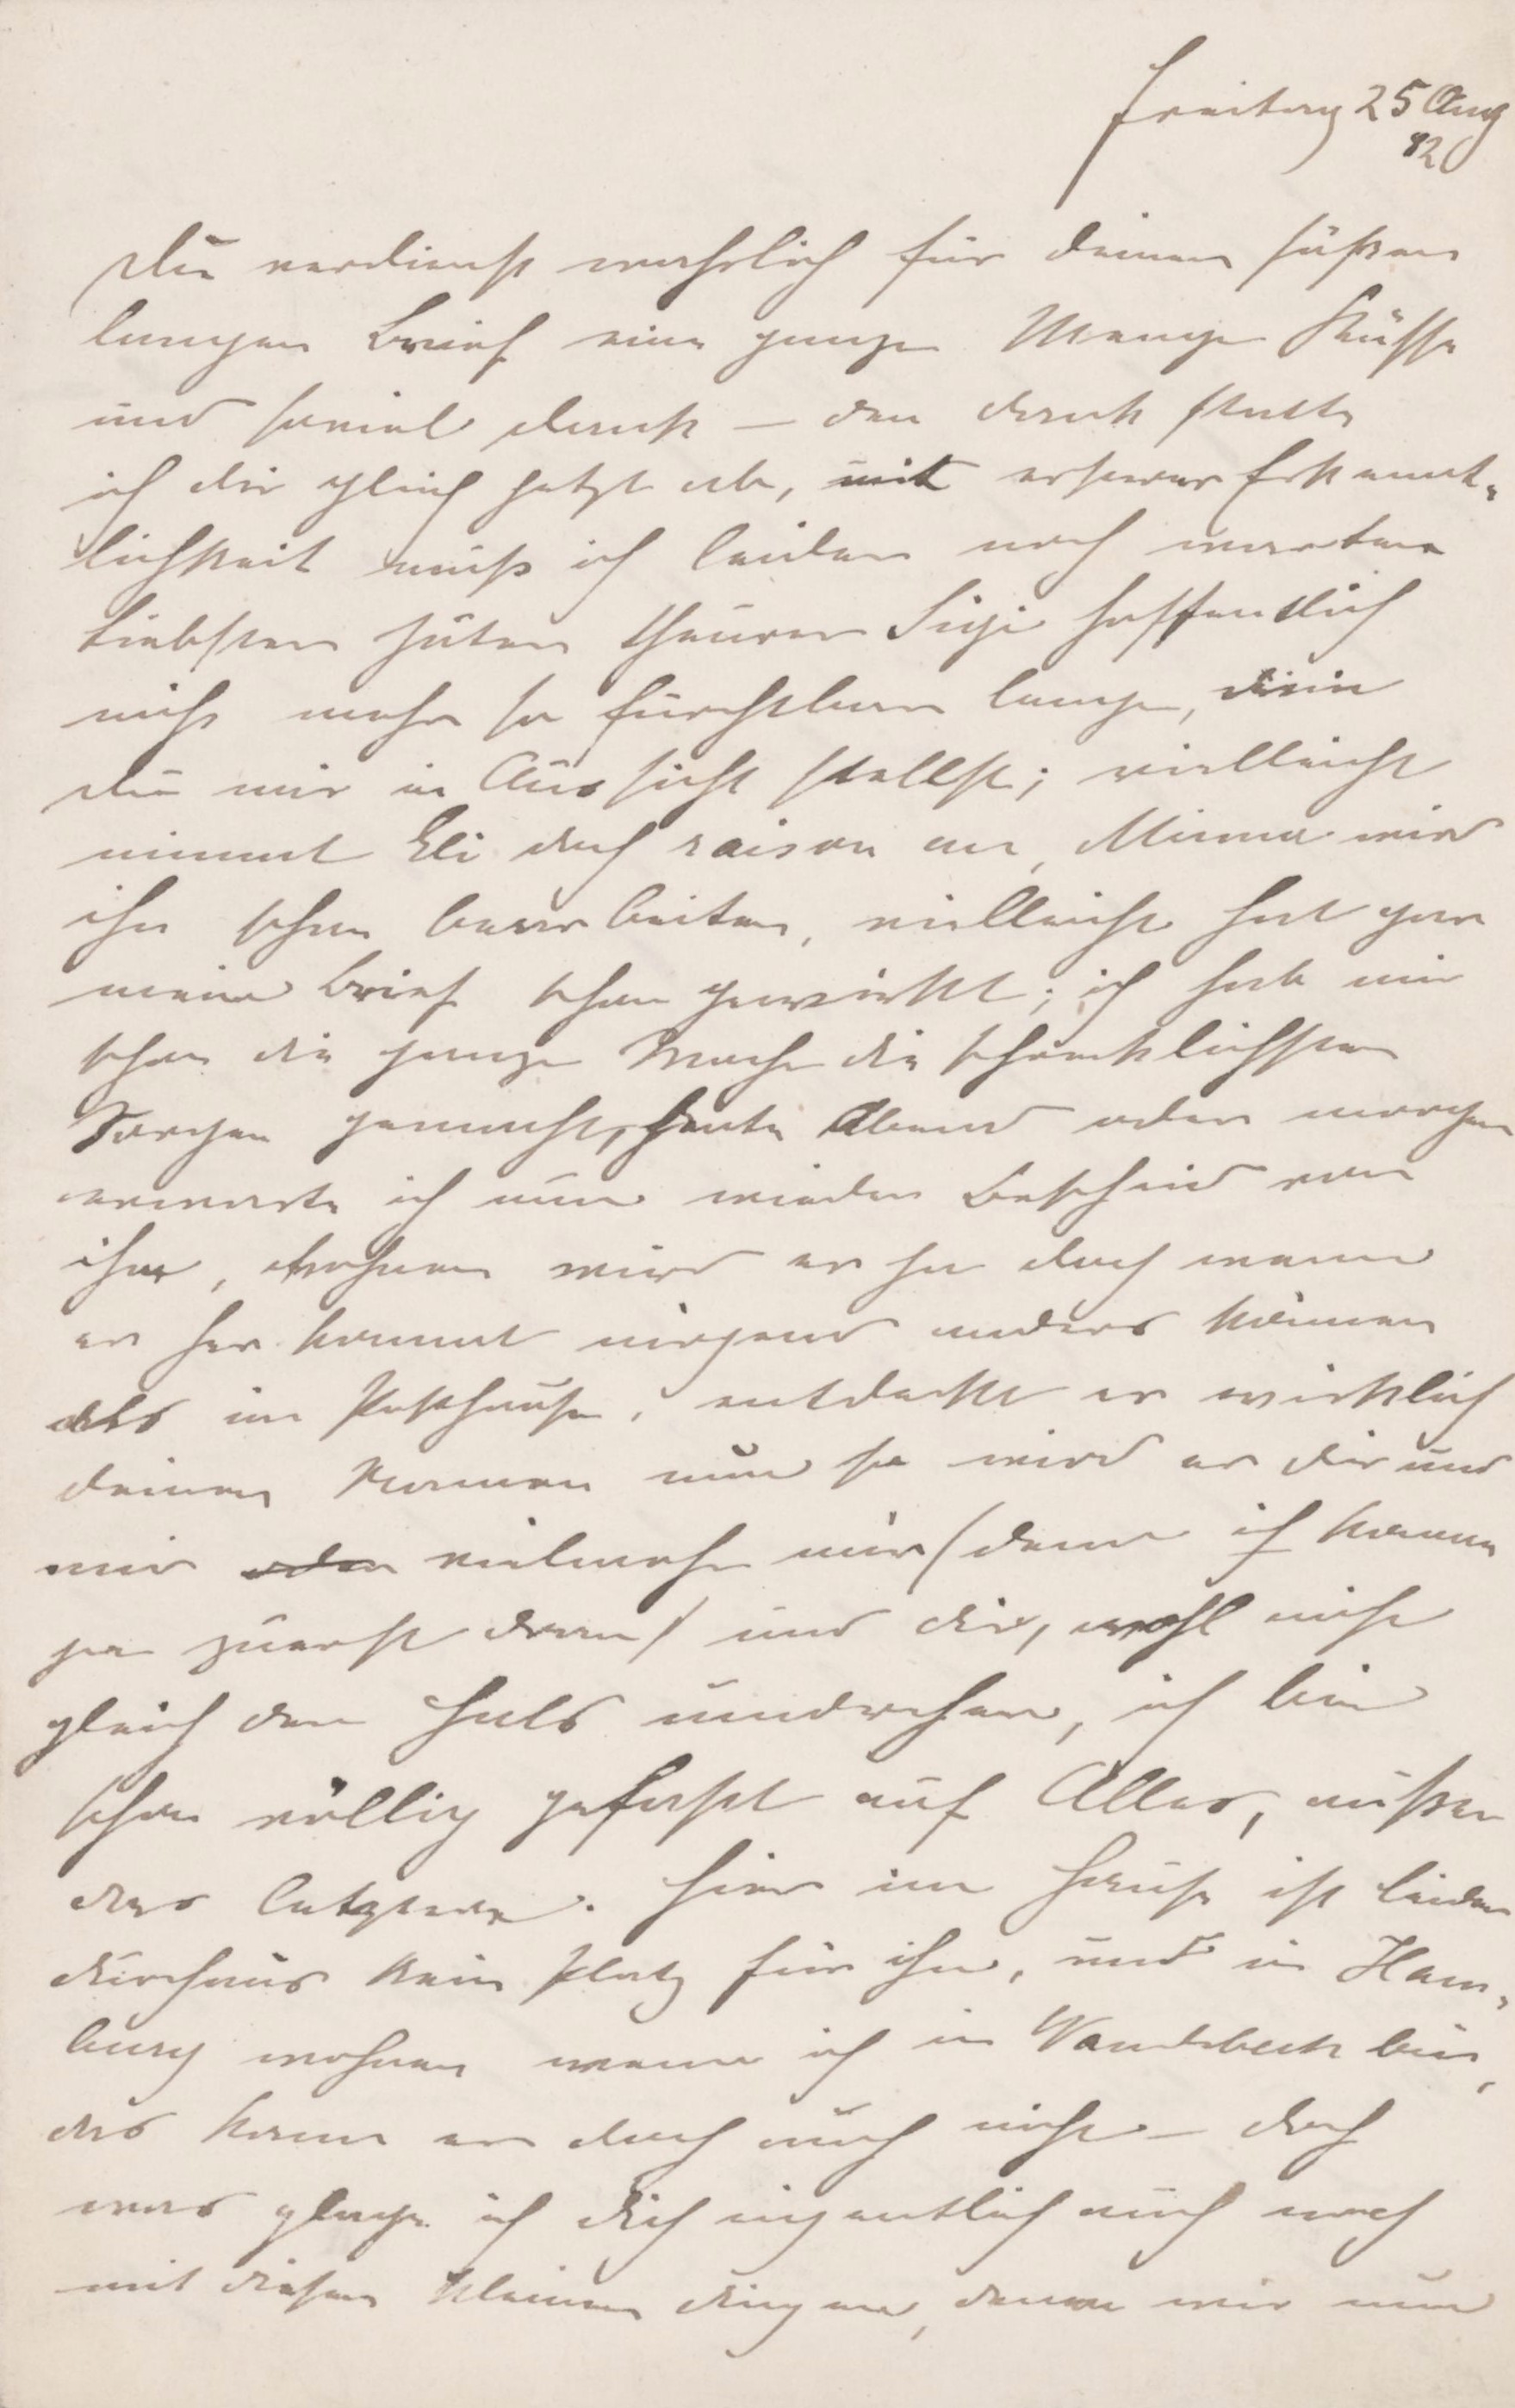 Freitag 25 Aug
82
Du verdienst wahrlich für deinen süßen
langen Brief eine ganze Menge Küsse
und soviel Dank – den Dank statte
ich dir gleich jetzt ab, mit ersterer Erkennt-
lichkeit muß ich leider noch warten
Liebster guter theurer Sigi hoffentlich
nicht mehr so furchtbar lange, wie
du mir in Aussicht stellst; vielleicht
nimmt Eli doch raison an, Minna wird
ihn schon bearbeiten, vielleicht hat gar
mein Brief schon gewirkt; ich hab mir
schon die ganze Woche die schrecklichsten
Sorgen gemacht, heute Abend oder morgen
erwarte ich nun wieder Bescheid von
ihm, wohnen wird er ja doch wenn
er her kommt nirgend anders können
als im Posthause, entdeckt er wirklich
deinen Namen nun so wird er dir und
mir oder vielmehr mir (denn ich komme
ja zuerst dran) und dir, wohl nicht
gleich den Hals umdrehen, ich bin
schon völlig gefaßt auf Alles, außer
das letztere. Hier im Hause ist leider
durchaus kein Platz für ihn, und in Ham-
burg wohnen wenn ich in Wandsbeck bin,
das kann er doch auch nicht – doch
was plage ich dich eigentlich auch noch
mit diesen kleinen Dingen, denen wir nun